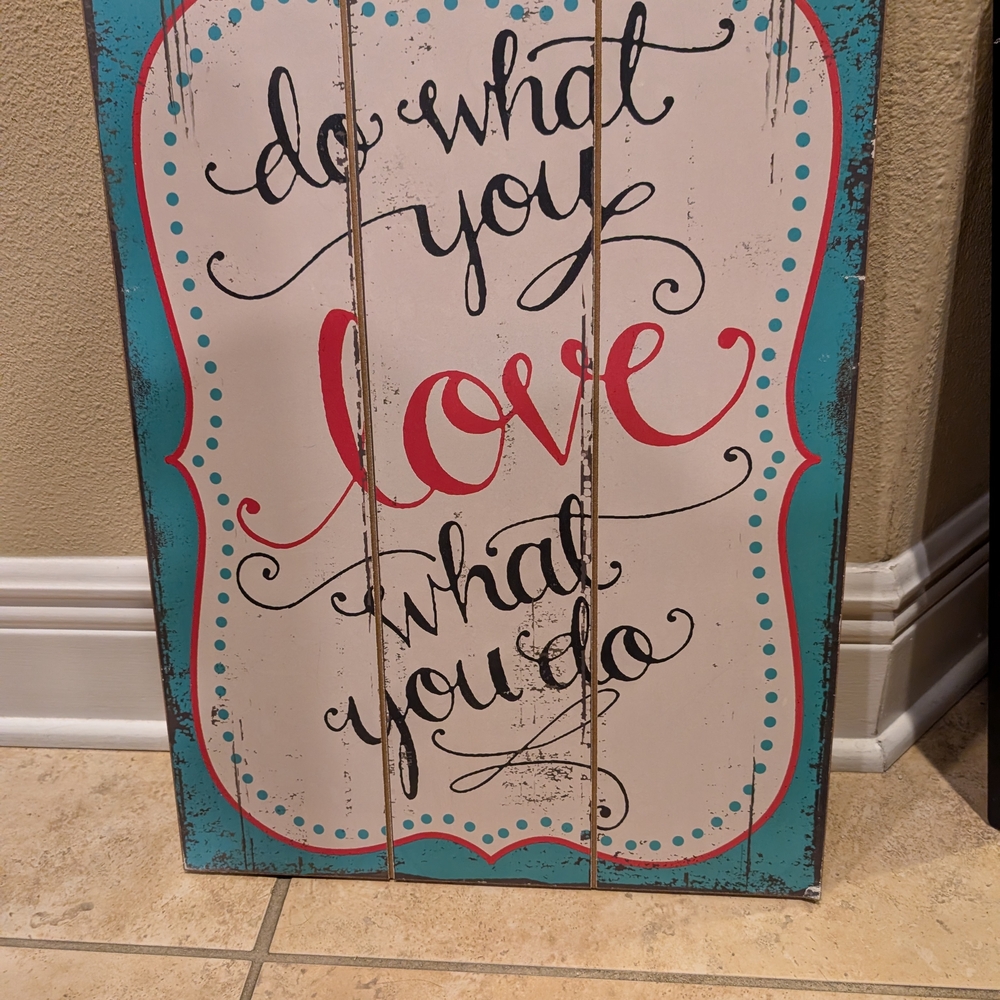 do what
you
love
what
you do